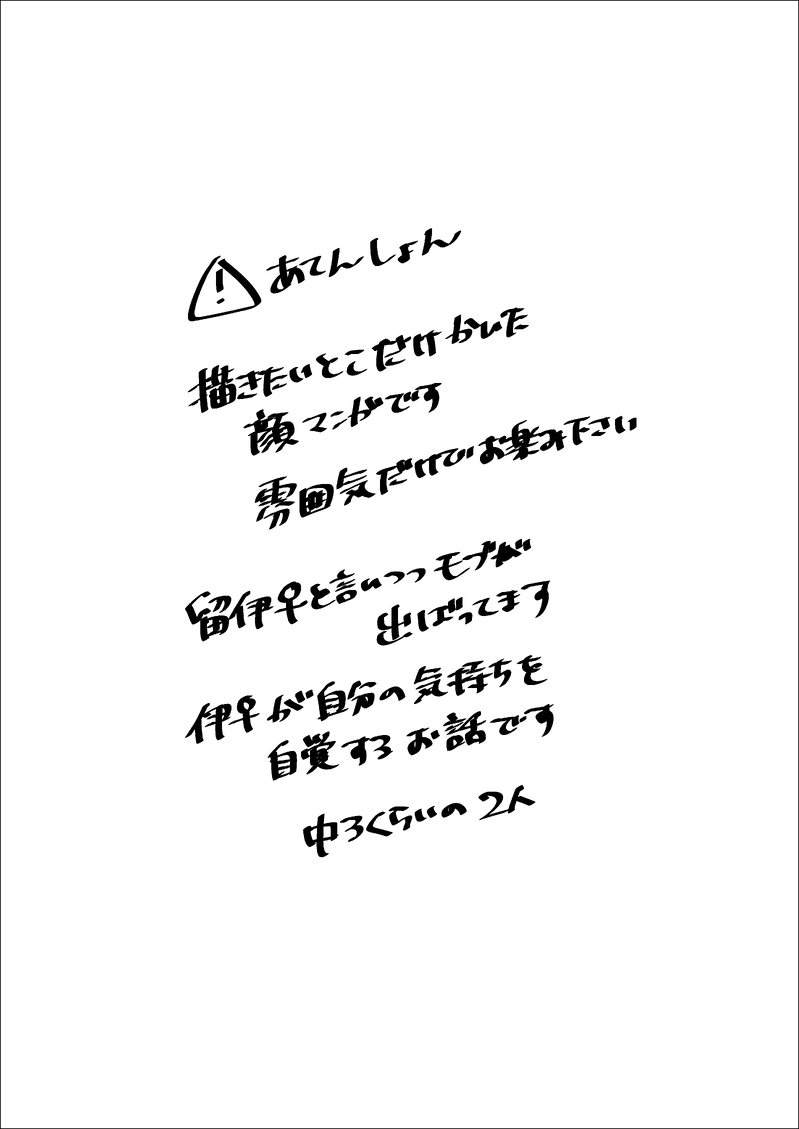 あてんしょん
描きたいとこだけかいた
顔マンガです
雰囲気だけでお楽み下さい
留伊♀と言いつつモブが
出ばってます
伊♀が自分の気持ちを
自覚するお話です
中3くらいの2人